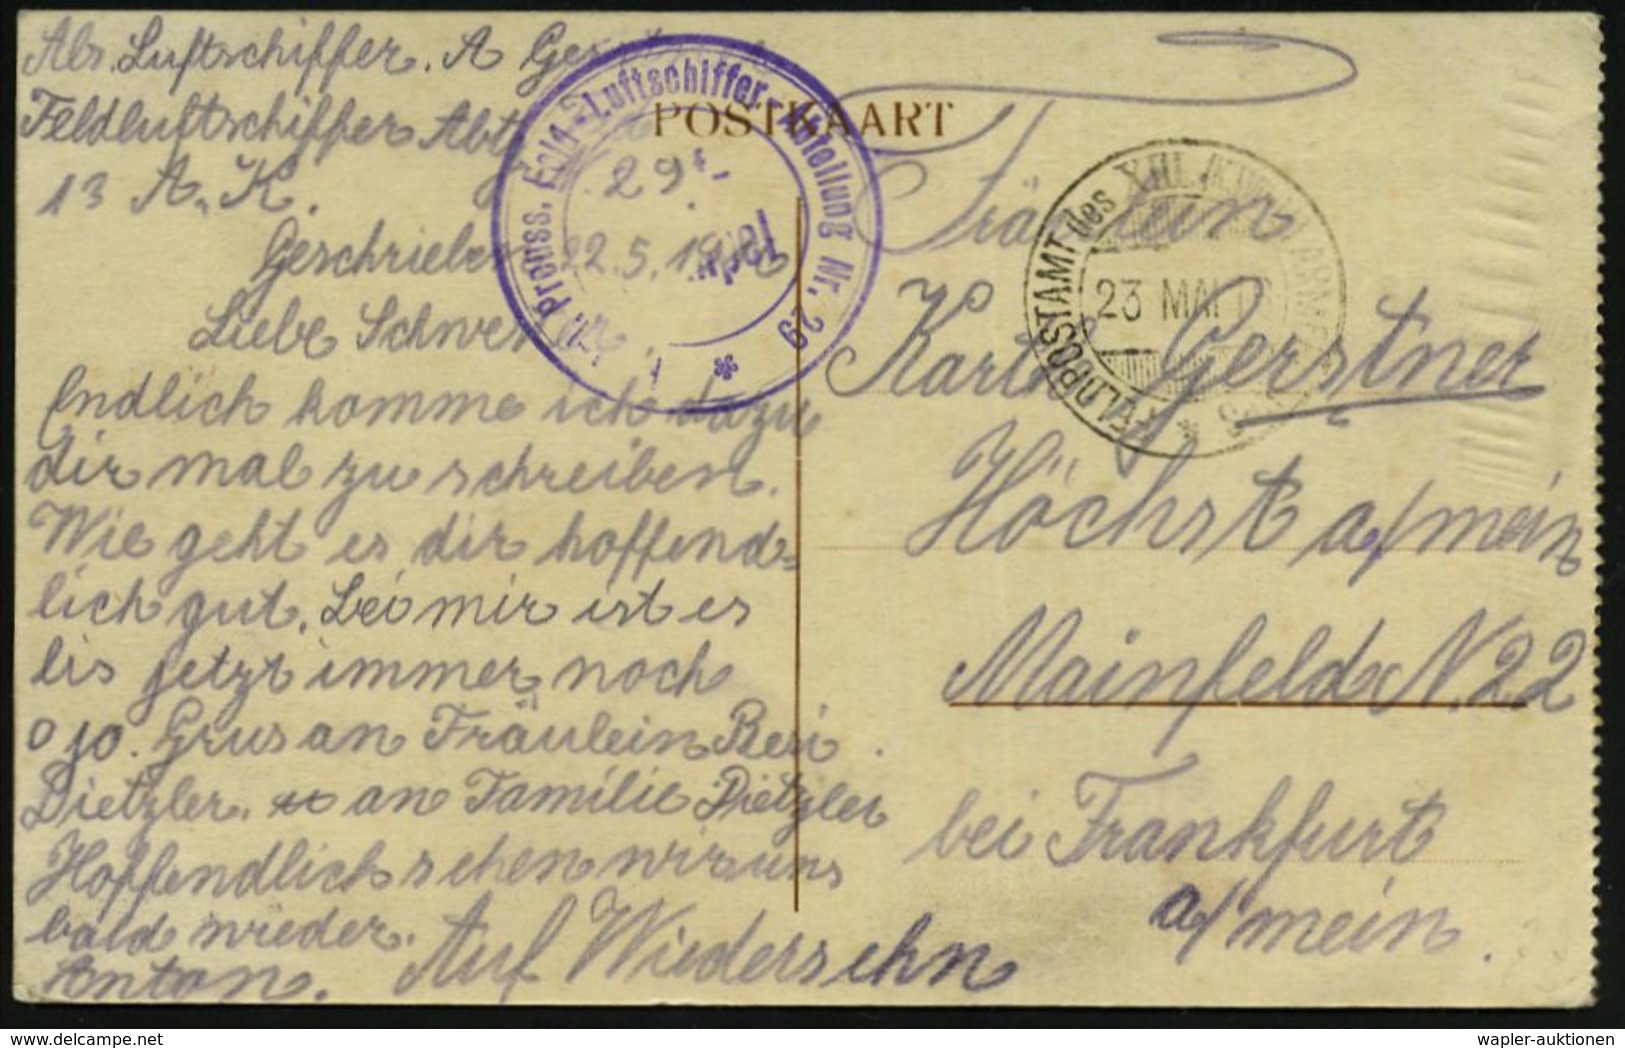 Abs. Luftschiffer. A
Feldluftschiffer Abt
13 A. K.
29
Geschrieben 22.5.
Liebe
Endlich komme ich dazu
dir mal zu schreiben.
Wie geht es dir hoffend=
lich gut. bei mir ist es
bis jetzt immer noch
so. Grus an Fräulein Resi
Dietzler. an Familie Dietzler
Hoffendlich sehen wir uns
bald wieder.
Anton. Auf Wiedersehn
POSTKAART
Preuss. Feld-Luftschiffer-Abteilung Nr. 29
FELDPOSTAMT des XIII.
23 MAI
Fräulein
Gerstner
Höchst a/mein
Mainfeld N. 22
bei Frankfurt
a/mein.
wapler-auktionen